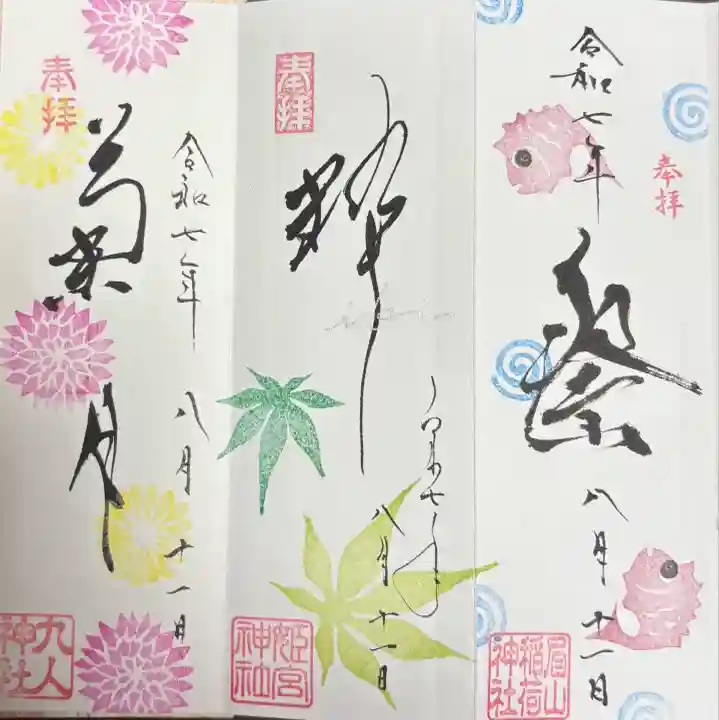 奉拝
令和七年
八月
十一日
眉山
稲荷
神社
奉拝
八月
十一日
姫宮
神社
奉拝
菊
月
令和七年
八月
十一日
九人
神社